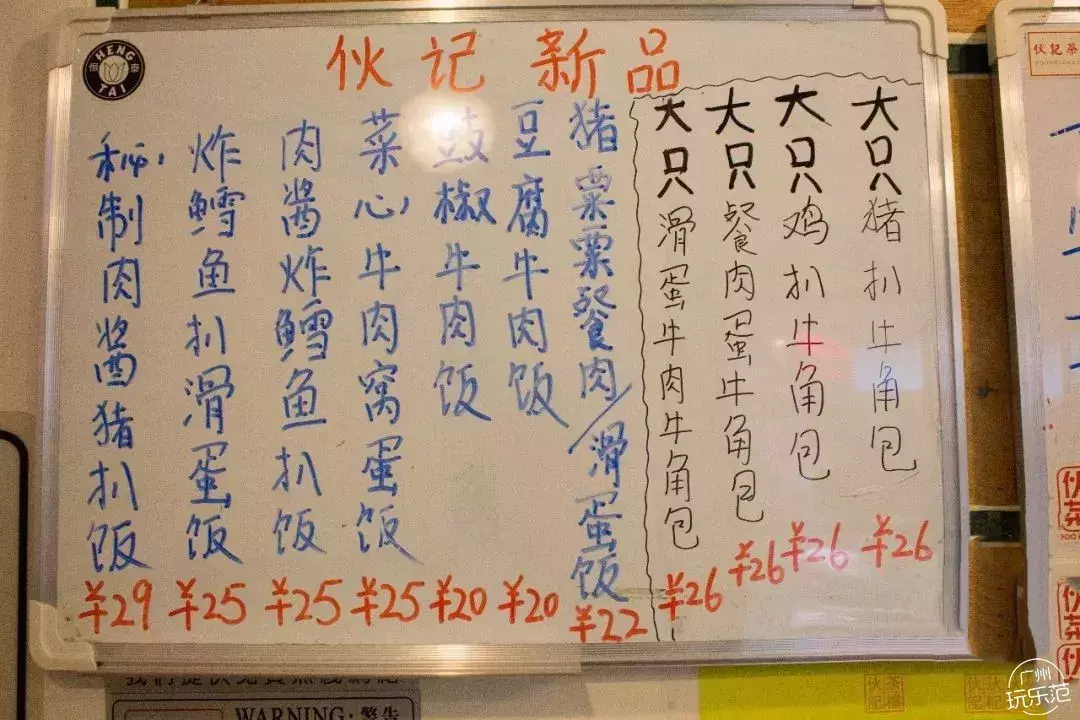 伙记新品
HENG
TAI
秘制肉酱猪扒饭
¥29
炸鳕鱼扒滑蛋饭
¥25
肉酱炸鳕鱼扒饭
¥25
菜心牛肉窝蛋饭
¥25
豉椒牛肉饭
¥20
豆腐牛肉饭
¥20
猪粟粟餐肉/滑蛋饭
¥22
大只滑蛋牛肉牛角包
¥26
大只餐肉蛋牛角包
¥26
大只鸡扒牛角包
¥26
大只猪扒牛角包
¥26
伙記茶
伙
茶
伙
茶
伙
WARNING: 警告
广州
玩乐范